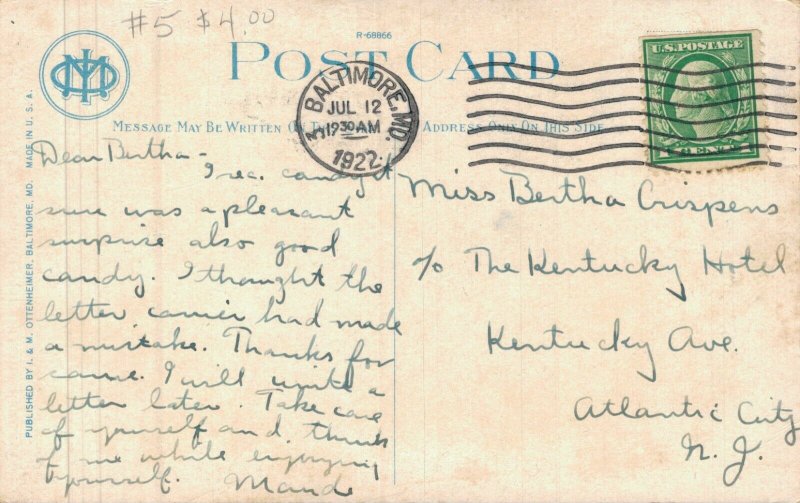 #5 $4.00
R-68866
POST CARD
BALTIMORE, MD.
JUL 12
1230 AM
1922
3
U.S. POSTAGE
1 CENT 1
MESSAGE MAY BE WRITTEN ON
ADDRESS ONLY ON THIS SIDE
MADE IN U.S.A.
PUBLISHED BY I. & M. OTTENHEIMER, BALTIMORE, MD.
Dear Bertha -
I rec. candy it
sure was a pleasant
surprise also good
candy. I thought the
letter carrier had made
a mistake. Thanks for
same. I will write a
letter later. Take care
of yourself and think
of me while enjoying
yourself. Maude
Miss Bertha Crispens
c/o The Kentucky Hotel
Kentucky Ave.
Atlantic City
N. J.